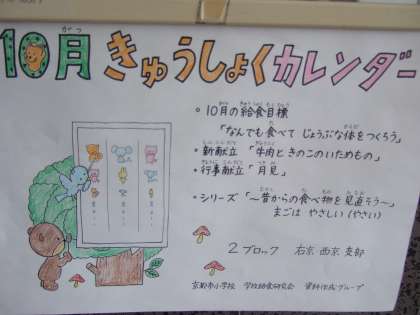 10月 きゅうしょくカレンダー
• 10月の給食目標
「なんでも食べて じょうぶな体をつくろう」
• 新献立 「牛肉ときのこのいためもの」
• 行事献立「月見」
• シリーズ 「〜昔からの食べ物を見直そう〜」
まごは やさしい(やさい)
2ブロック 右京・西京 支部
京都市小学校 学校給食研究会 資料作成グループ